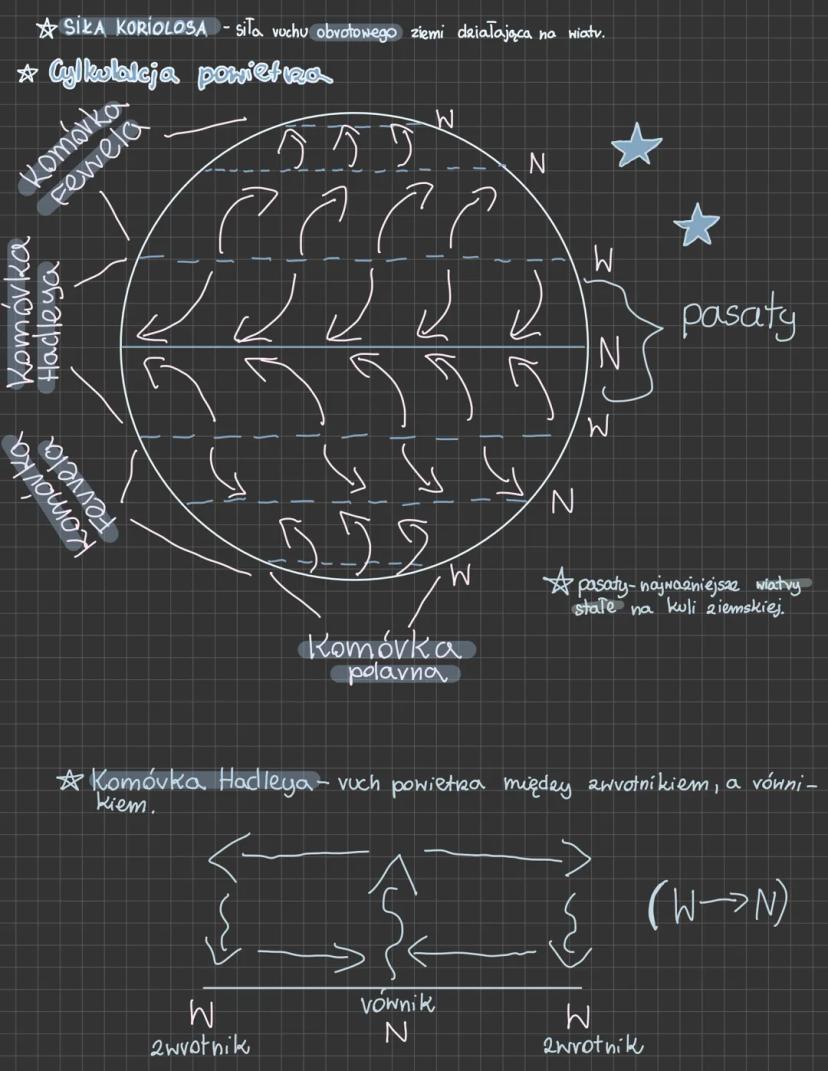 SIŁA KORIOLOSA - siła ruchu obrotowego ziemi działająca na wiatr.
Cyrkulacja powietrza
Komórka
Ferrela
W
N
W
Komórka
Hadleya
pasaty
N
W
Komórka
Ferrela
N
W
pasaty - najważniejsze wiatry
stałe na kuli ziemskiej.
Komórka
polarna
Komórka Hadleya - ruch powietrza między zwrotnikiem, a równi-
kiem.
(W → N)
W
zwrotnik
równik
N
W
zwrotnik